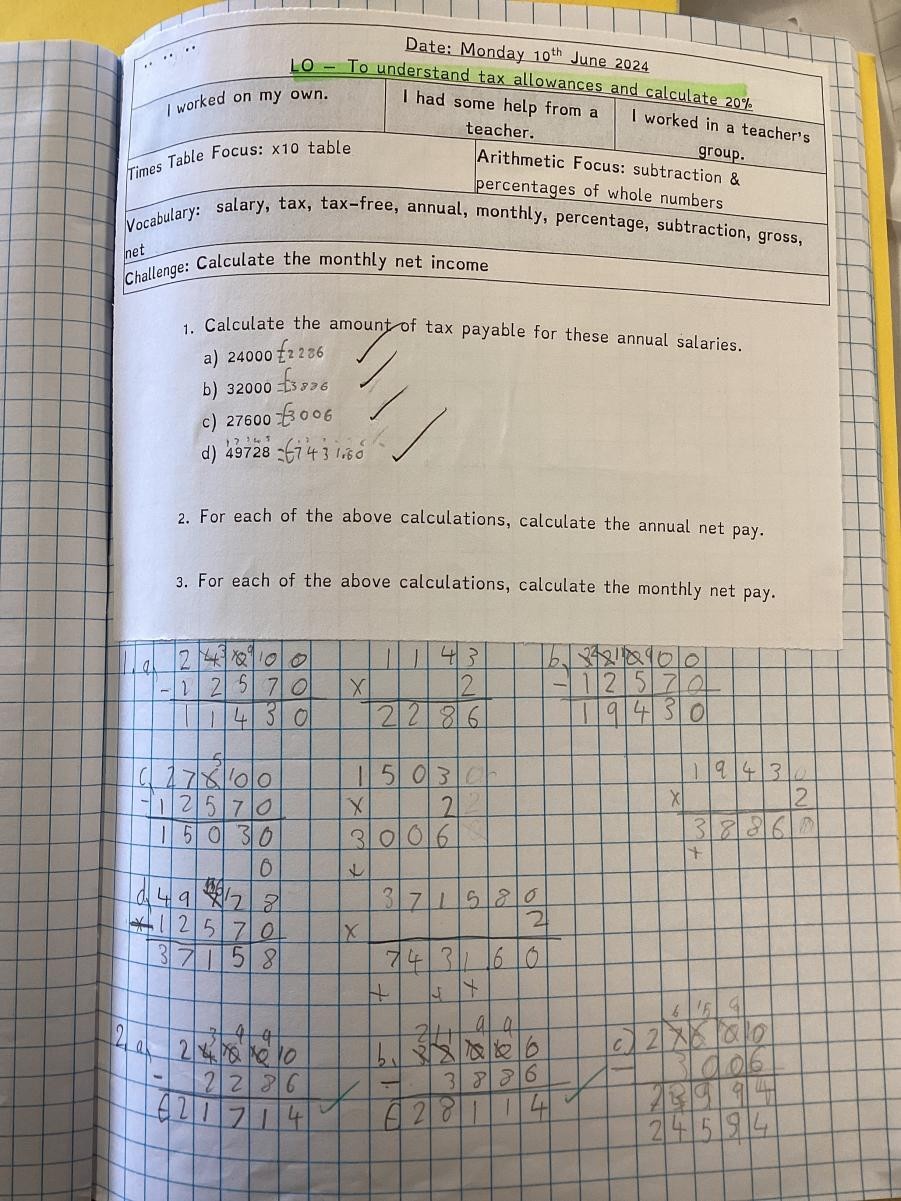 Date: Monday 10th June 2024
LO – To understand tax allowances and calculate 20%
I worked on my own.
I had some help from a
teacher.
I worked in a teacher's
group.
Times Table Focus: x10 table
Arithmetic Focus: subtraction &
percentages of whole numbers
Vocabulary: salary, tax, tax-free, annual, monthly, percentage, subtraction, gross,
net
Challenge: Calculate the monthly net income
1. Calculate the amount of tax payable for these annual salaries.
a) 24000 £2286
b) 32000 =£3886
c) 27600 =£3006
d) 49728 =£7431.60
2. For each of the above calculations, calculate the annual net pay.
3. For each of the above calculations, calculate the monthly net pay.
1.a)
- 1 2 5 7 0
1 1 4 3 0
1 1 4 3
x 2
2 2 8 6
b)
- 1 2 5 7 0
1 9 4 3 0
c)
- 1 2 5 7 0
1 5 0 3 0
0
1 5 0 3
x 2
3 0 0 6
+
1 9 4 3
x 2
3 8 8 6
+
d)
1 2 5 7 0
3 7 1 5 8
3 7 1 5 8 0
x 2
7 4 3 1.6 0
+ + +
2.a)
- 2 2 8 6
£ 2 1 7 1 4
b)
- 3 8 8 6
£ 2 8 1 1 4
c)
- 3 0 0 6
2 4 5 9 4